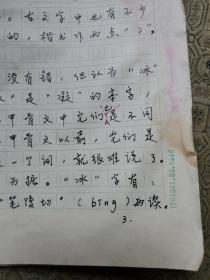 。古文字中也有不少
的，楷书作两点“冫”。
没有错，但认为“冰”
”是“凝”的本字，
甲骨文中它们是不同
甲骨文以前，它们是
一个词，就很难说了。
为据。“冰”字有：
“笔陵切”（bīng）两读。
3.